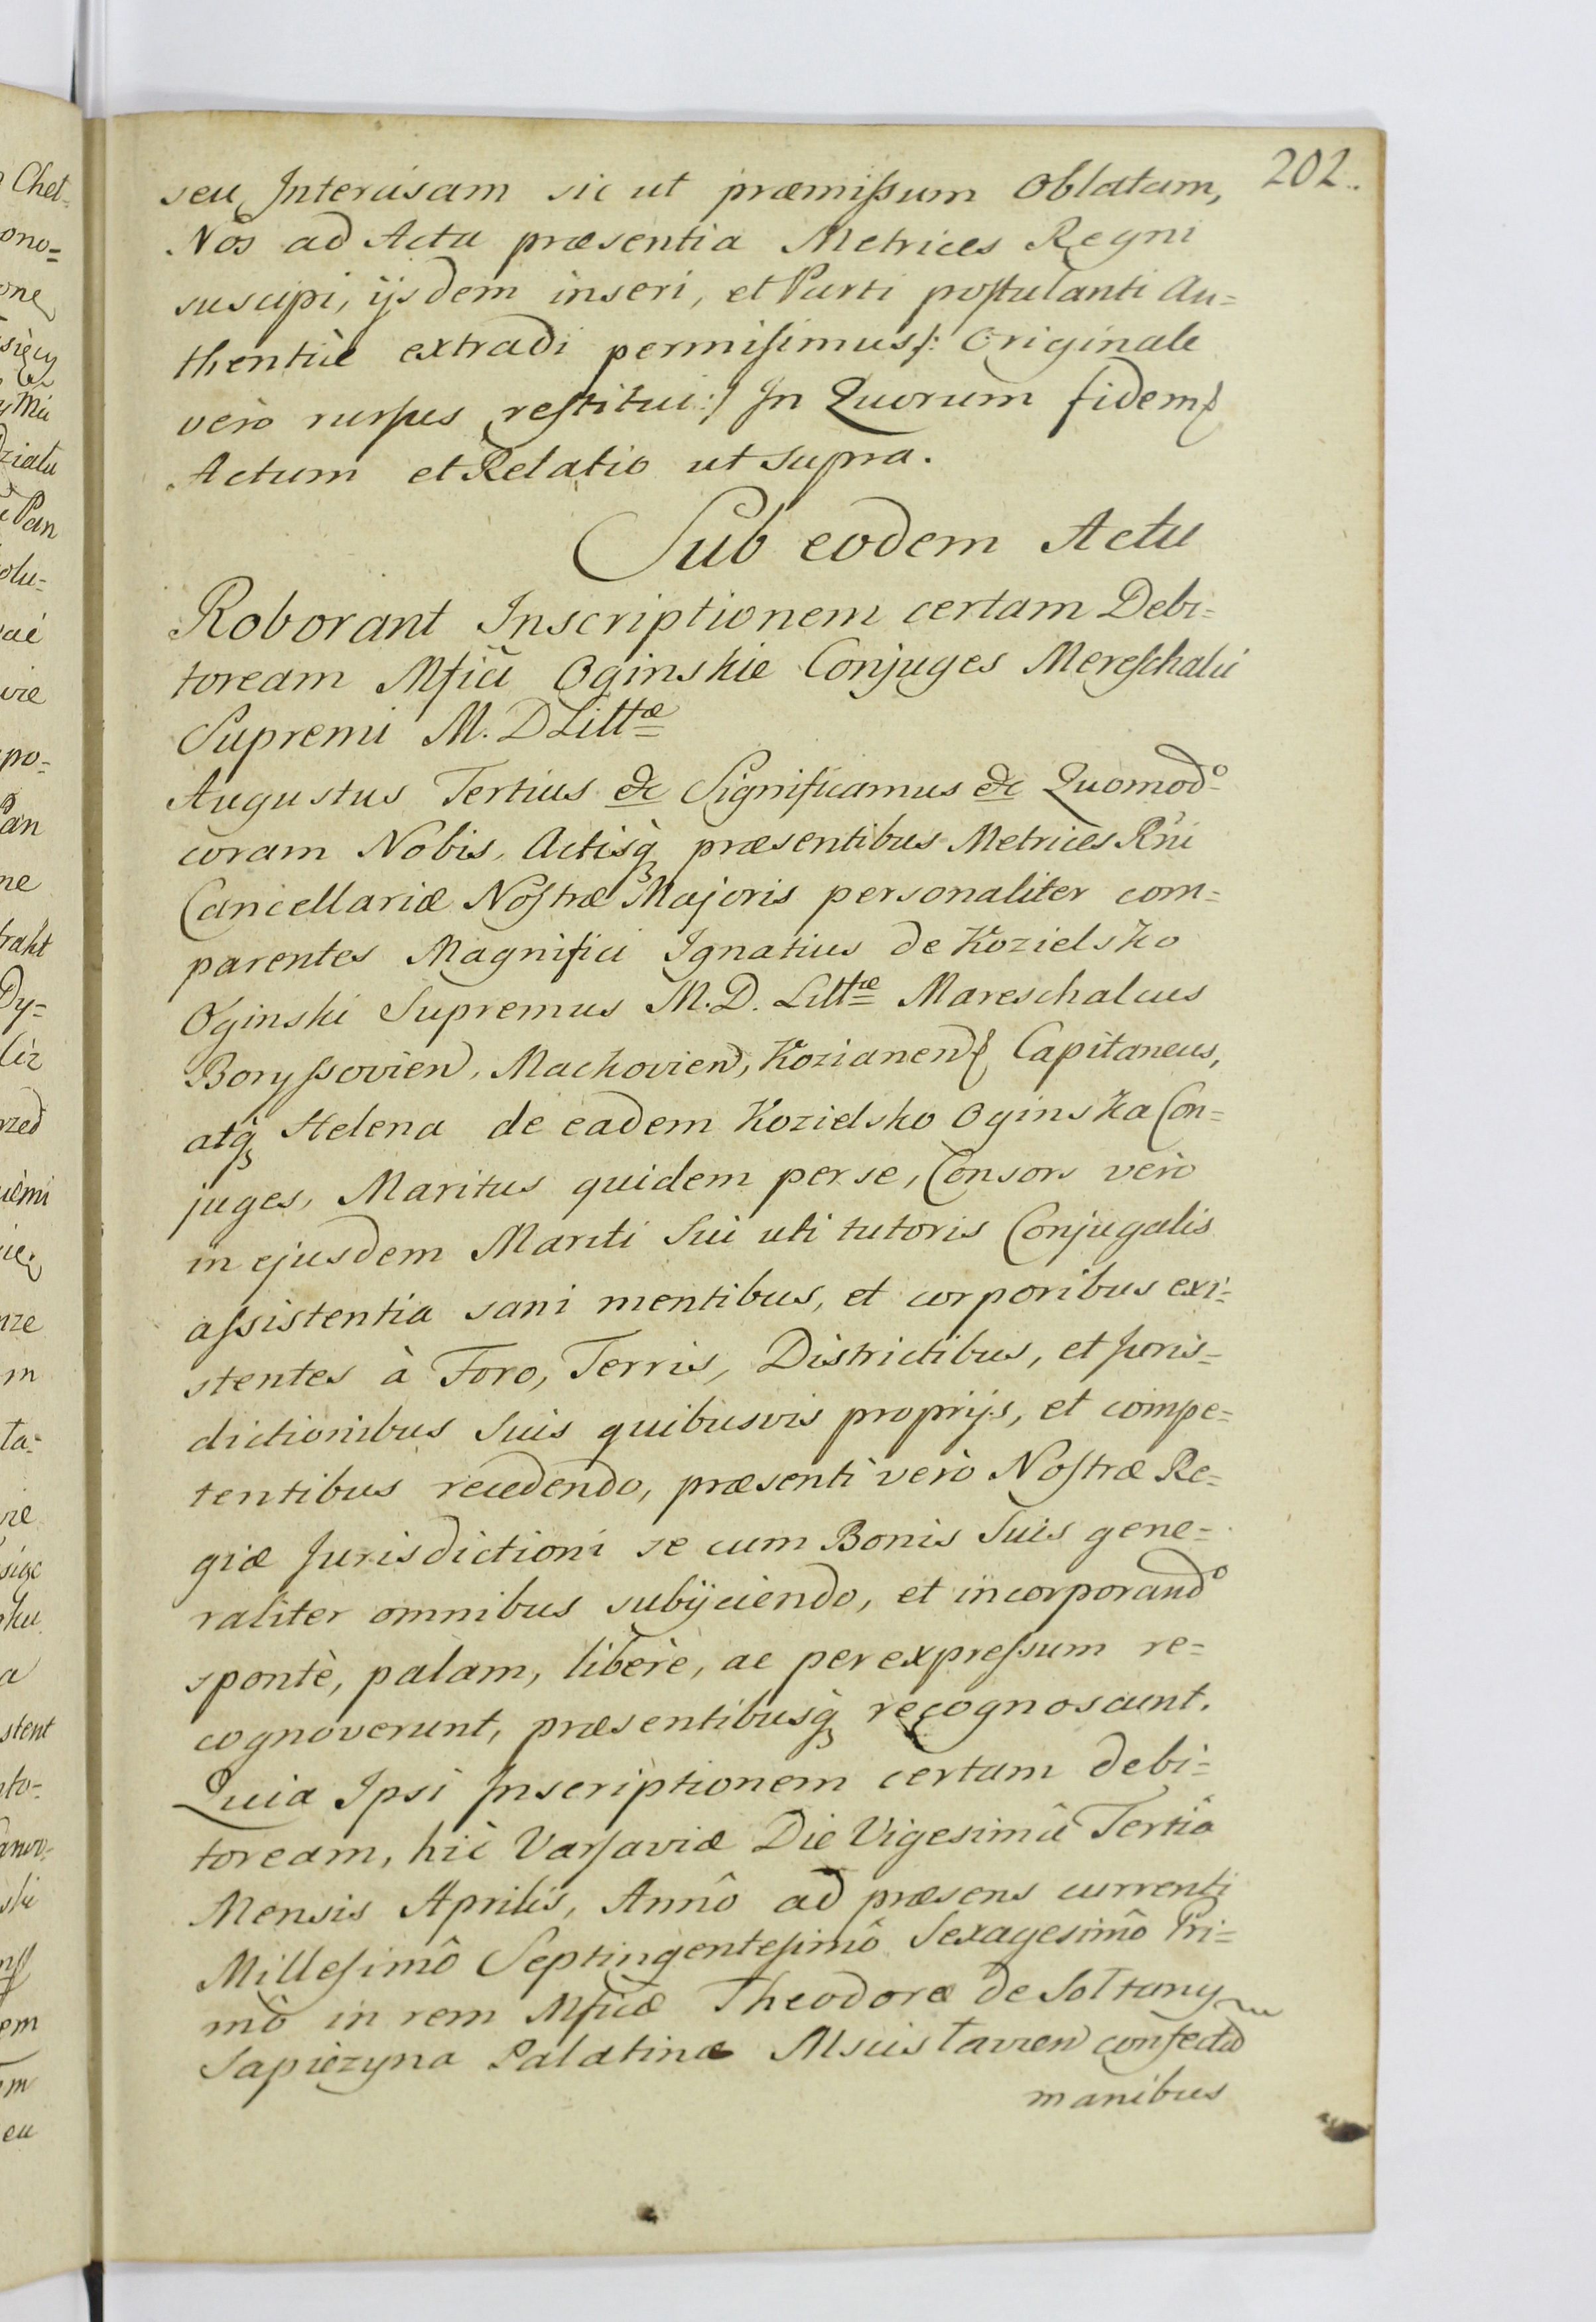 202.
seu Intercisam sic ut præmissum Oblatam,
Nos ad Acta præsentia Metrices Regni
suscipi, ijsdem inseri, et Parti postulanti Au=
thenticè extradi permisimus /: Originale
verò rursus restitui :/ In Quorum fidem
Actum et Relatio ut supra.
Sub eodem Actu
Roborant Inscriptionem certam Debi=
toream Mfici Oginskie Conjuges Mereschalci
Supremi M. D Littæ
Augustus Tertius &c Significamus &c Quomodo
coram Nobis, Actisq præsentibus Metrices Rni
Cancellariæ Nostræ Majoris personaliter com=
parentes Magnifici Ignatius de Kozielsko
Oginski Supremus M. D. Littæ Mareschalcus
Boryssovien, Machovien, Kozianen Capitaneus,
atq Helena de eadem Kozielsko Oginska Con=
juges, Maritus quidem per se, Consors verò
in ejusdem Mariti Sui uti tutoris Conjugalis
assistentia sani mentibus, et corporibus exi=
stentes à Foro, Terris, Districtibus, et Juris=
dictionibus Suis quibusvis proprijs, et compe=
tentibus recedendo, præsenti verò Nostræ Re=
giæ Jurisdictioni se cum Bonis Suis gene=
raliter omnibus subijciendo, et incorporando
spontè, palam, liberè, ac per expressum re=
cognoverunt, præsentibusq recognoscunt.
Quia Ipsi Inscriptionem certam debi=
toream, hic Varsaviæ Die Vigesimâ Tertiâ
Mensis Aprilis, Annô ad præsens currenti
Millesimô Septingentesimô Sexagesimô Pri=
mô in rem Mficæ Theodoræ de Soltany
Sapiezyna Palatinæ Mscislavien confectâ
manibus